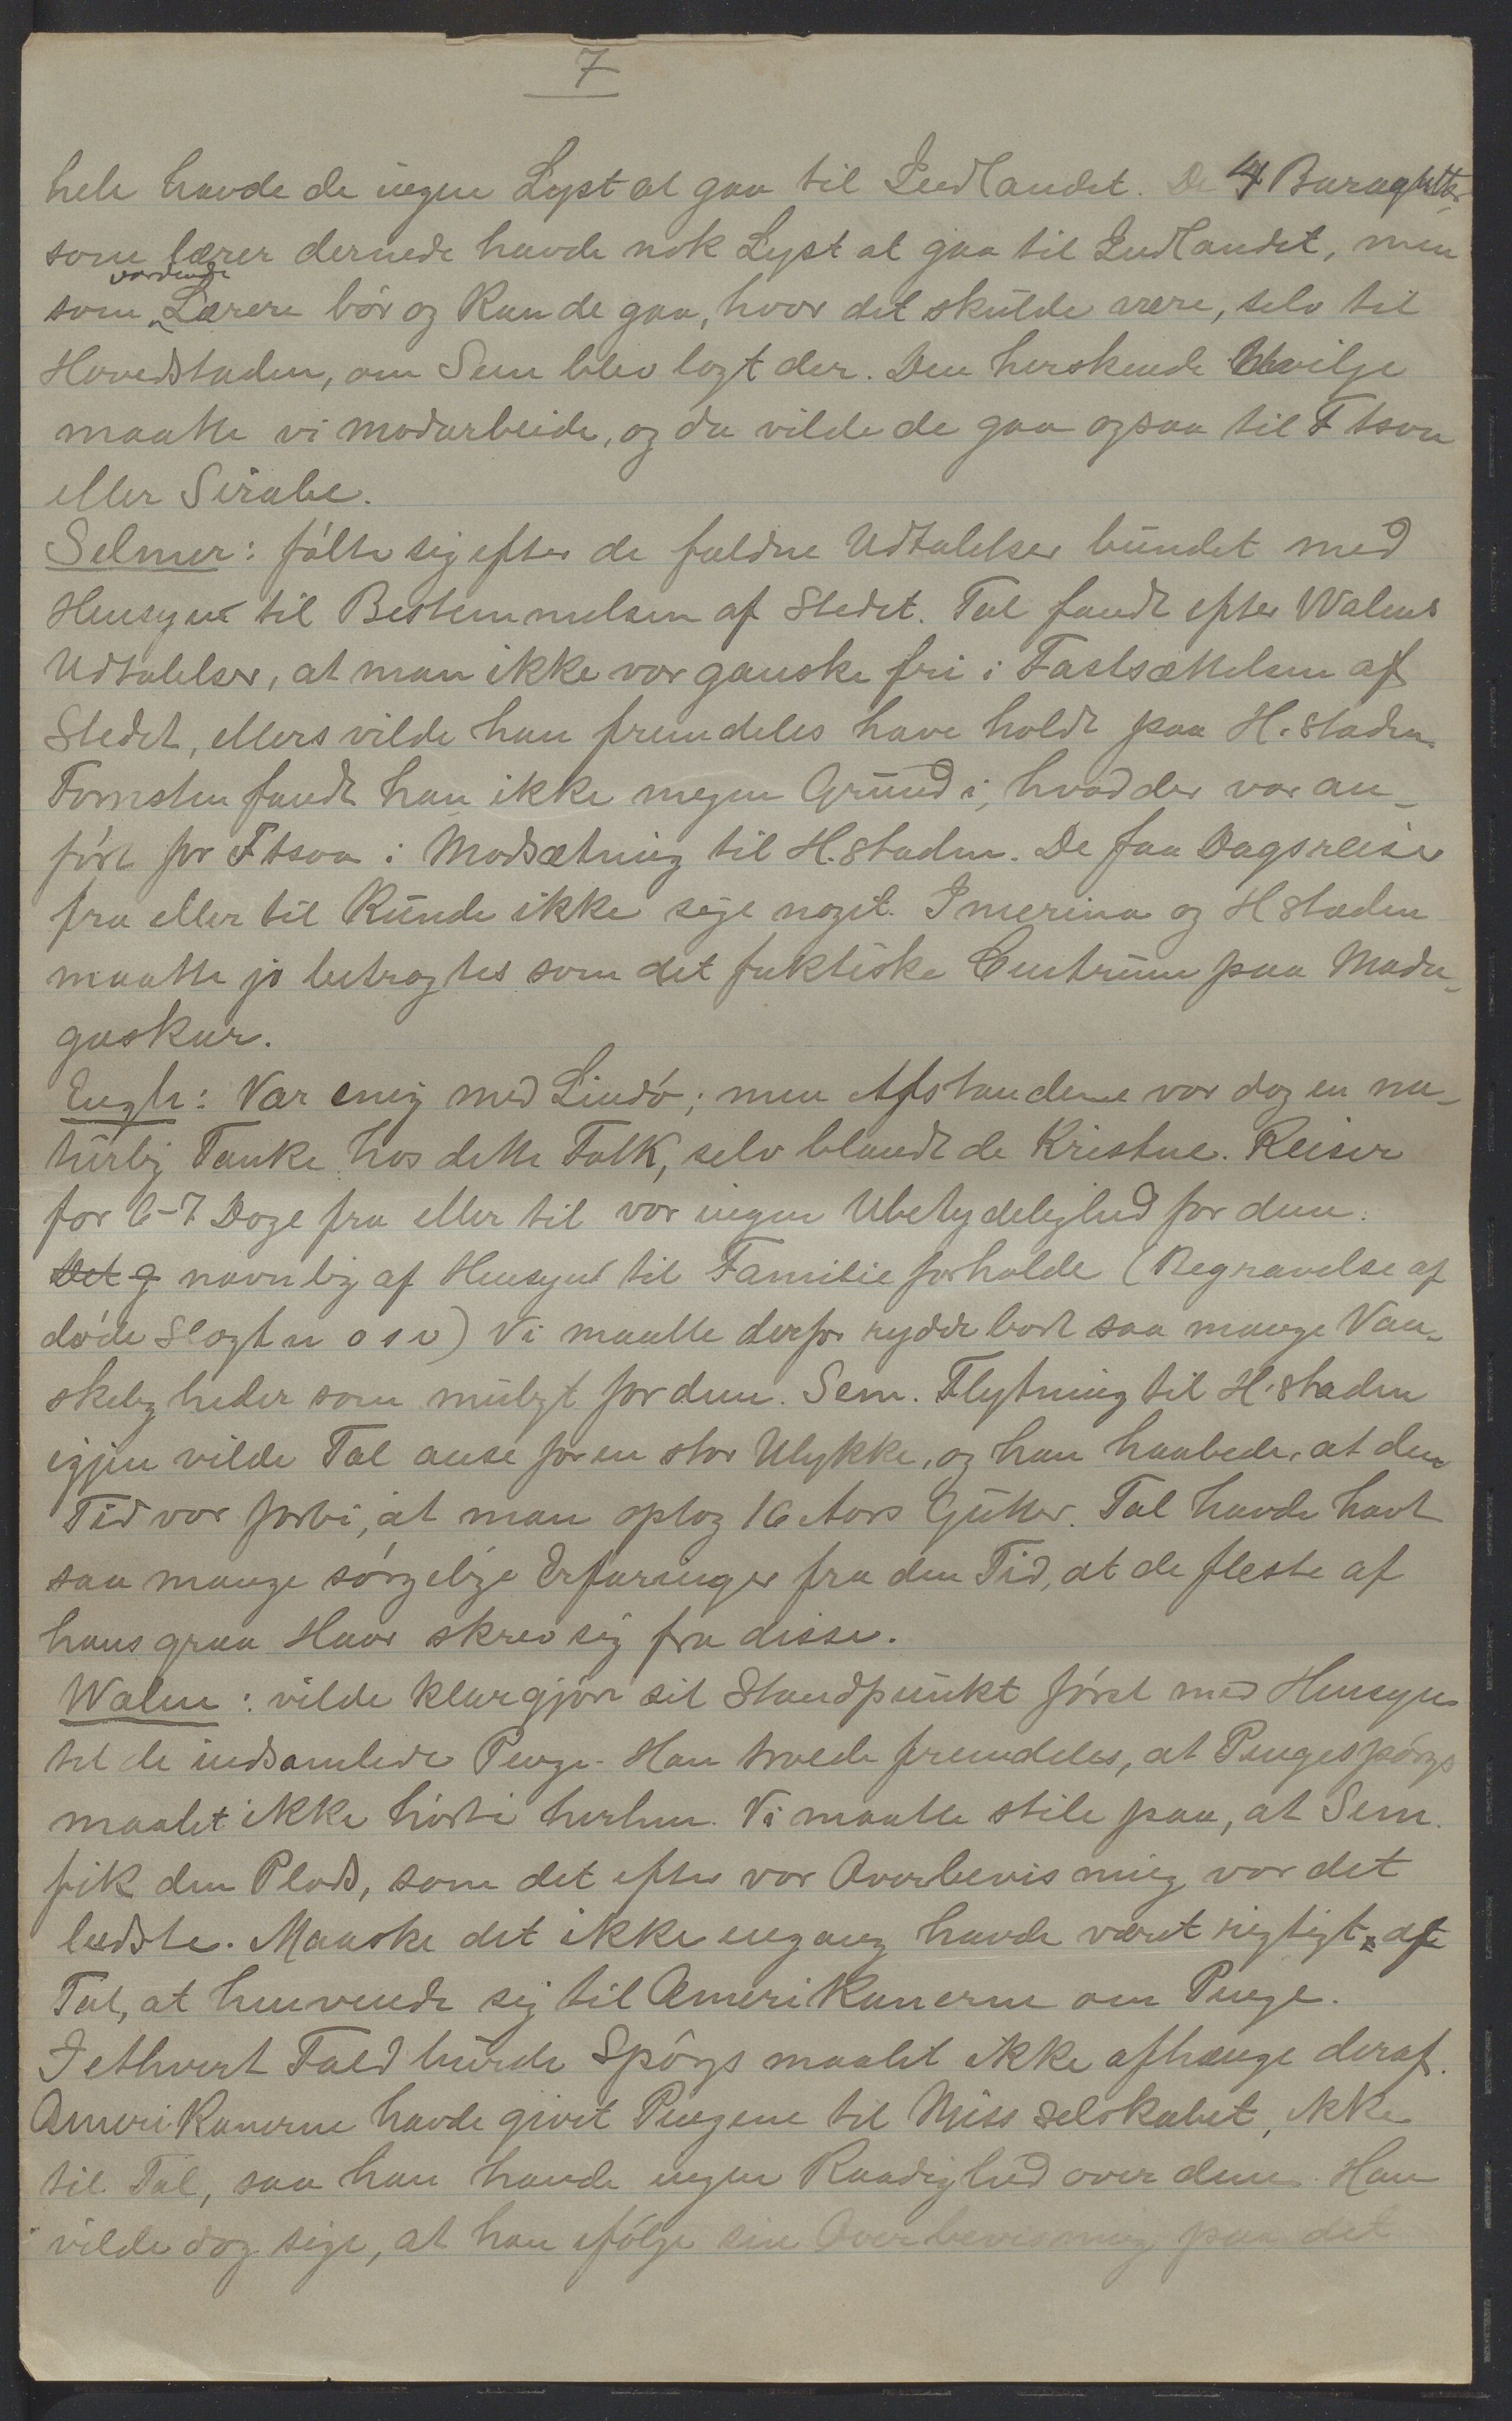 7
hele havde de ingen Lyst at gaa til Indlandet. De 4 Baragutter
som lærer dernede havde nok Lyst at gaa til Indlandet, men
vordende
som Lærere bör og kan de gaa, hvor det skulde være, selv til
Hovedstaden, om Sem blev lagt der. Den herskende Uvilje
maatte vi modarbeide, og da vilde de gaa ogsaa til F tsoa
eller Sirabe.
Selmer: fölte sig efter de faldne Udtalelser bundet med
Hensyn til Bestemmelsen af Stedet. Tal fandt efter Walens
Udtalelser, at man ikke var ganske fri i Fastsættelsen af
Stedet, ellers vilde han fremdeles have holdt paa H.staden
Fornsten fandt han ikke megen Grund i, hvad der var an-
fört for F tsoa i Modsætning til H.staden. De faa Dagsreiser
fra eller til kunde ikke sige noget. Imerina og H staden
maatte jo betragtes som det faktiske Centrum paa Mada-
gaskar.
Engh: Var enig med Lindö; men Afstandene var dog en na-
turlig Tanke hos dette Folk, selv blandt de Kristne. Reiser
for 6-7 Dage fra eller til var ingen Ubetydelighed for dem.
Det g navnlig af Hensyn til Familieforholde (Begravelse af
döde Slægtn o s v) Vi maatte derfor rydde bort saa mange Van-
skeligheder som muligt for dem. Sem. Flytning til H.staden
igjen vilde Tal anse for en stor Ulykke, og han haabede, at den
Tid var forbi, at man optog 16 Aars Gutter. Tal havde havt
saa mange sörgelige Erfaringer fra den Tid, at de fleste af
hans graa Haar skrev sig fra disse.
Walen: vilde klargjöre sit Standpunkt först med Hensyn
til de indsamlede Penge. Han troede fremdeles, at Pengespörgs
maalet ikke hörte herhen. Vi maatte stile paa, at Sem.
fik den Plads, som det efter vor Overbevisning var det
bedste. Maaske det ikke engang havde været rigtigt af
Tal, at henvende sig til Amerikanerne om Penge.
I ethvert Fald burde Spörgsmaalet ikke afhænge deraf.
Amerikanerne havde givet Pengene til Miss selskabet, ikke
til Tal, saa han havde ingen Raadighed over dem. Han
vilde dog sige, at han ifölge sin Overbevisning paa det